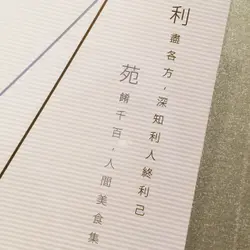 利
盡各方，深知利人終利己
苑
餚千百，人間美食集